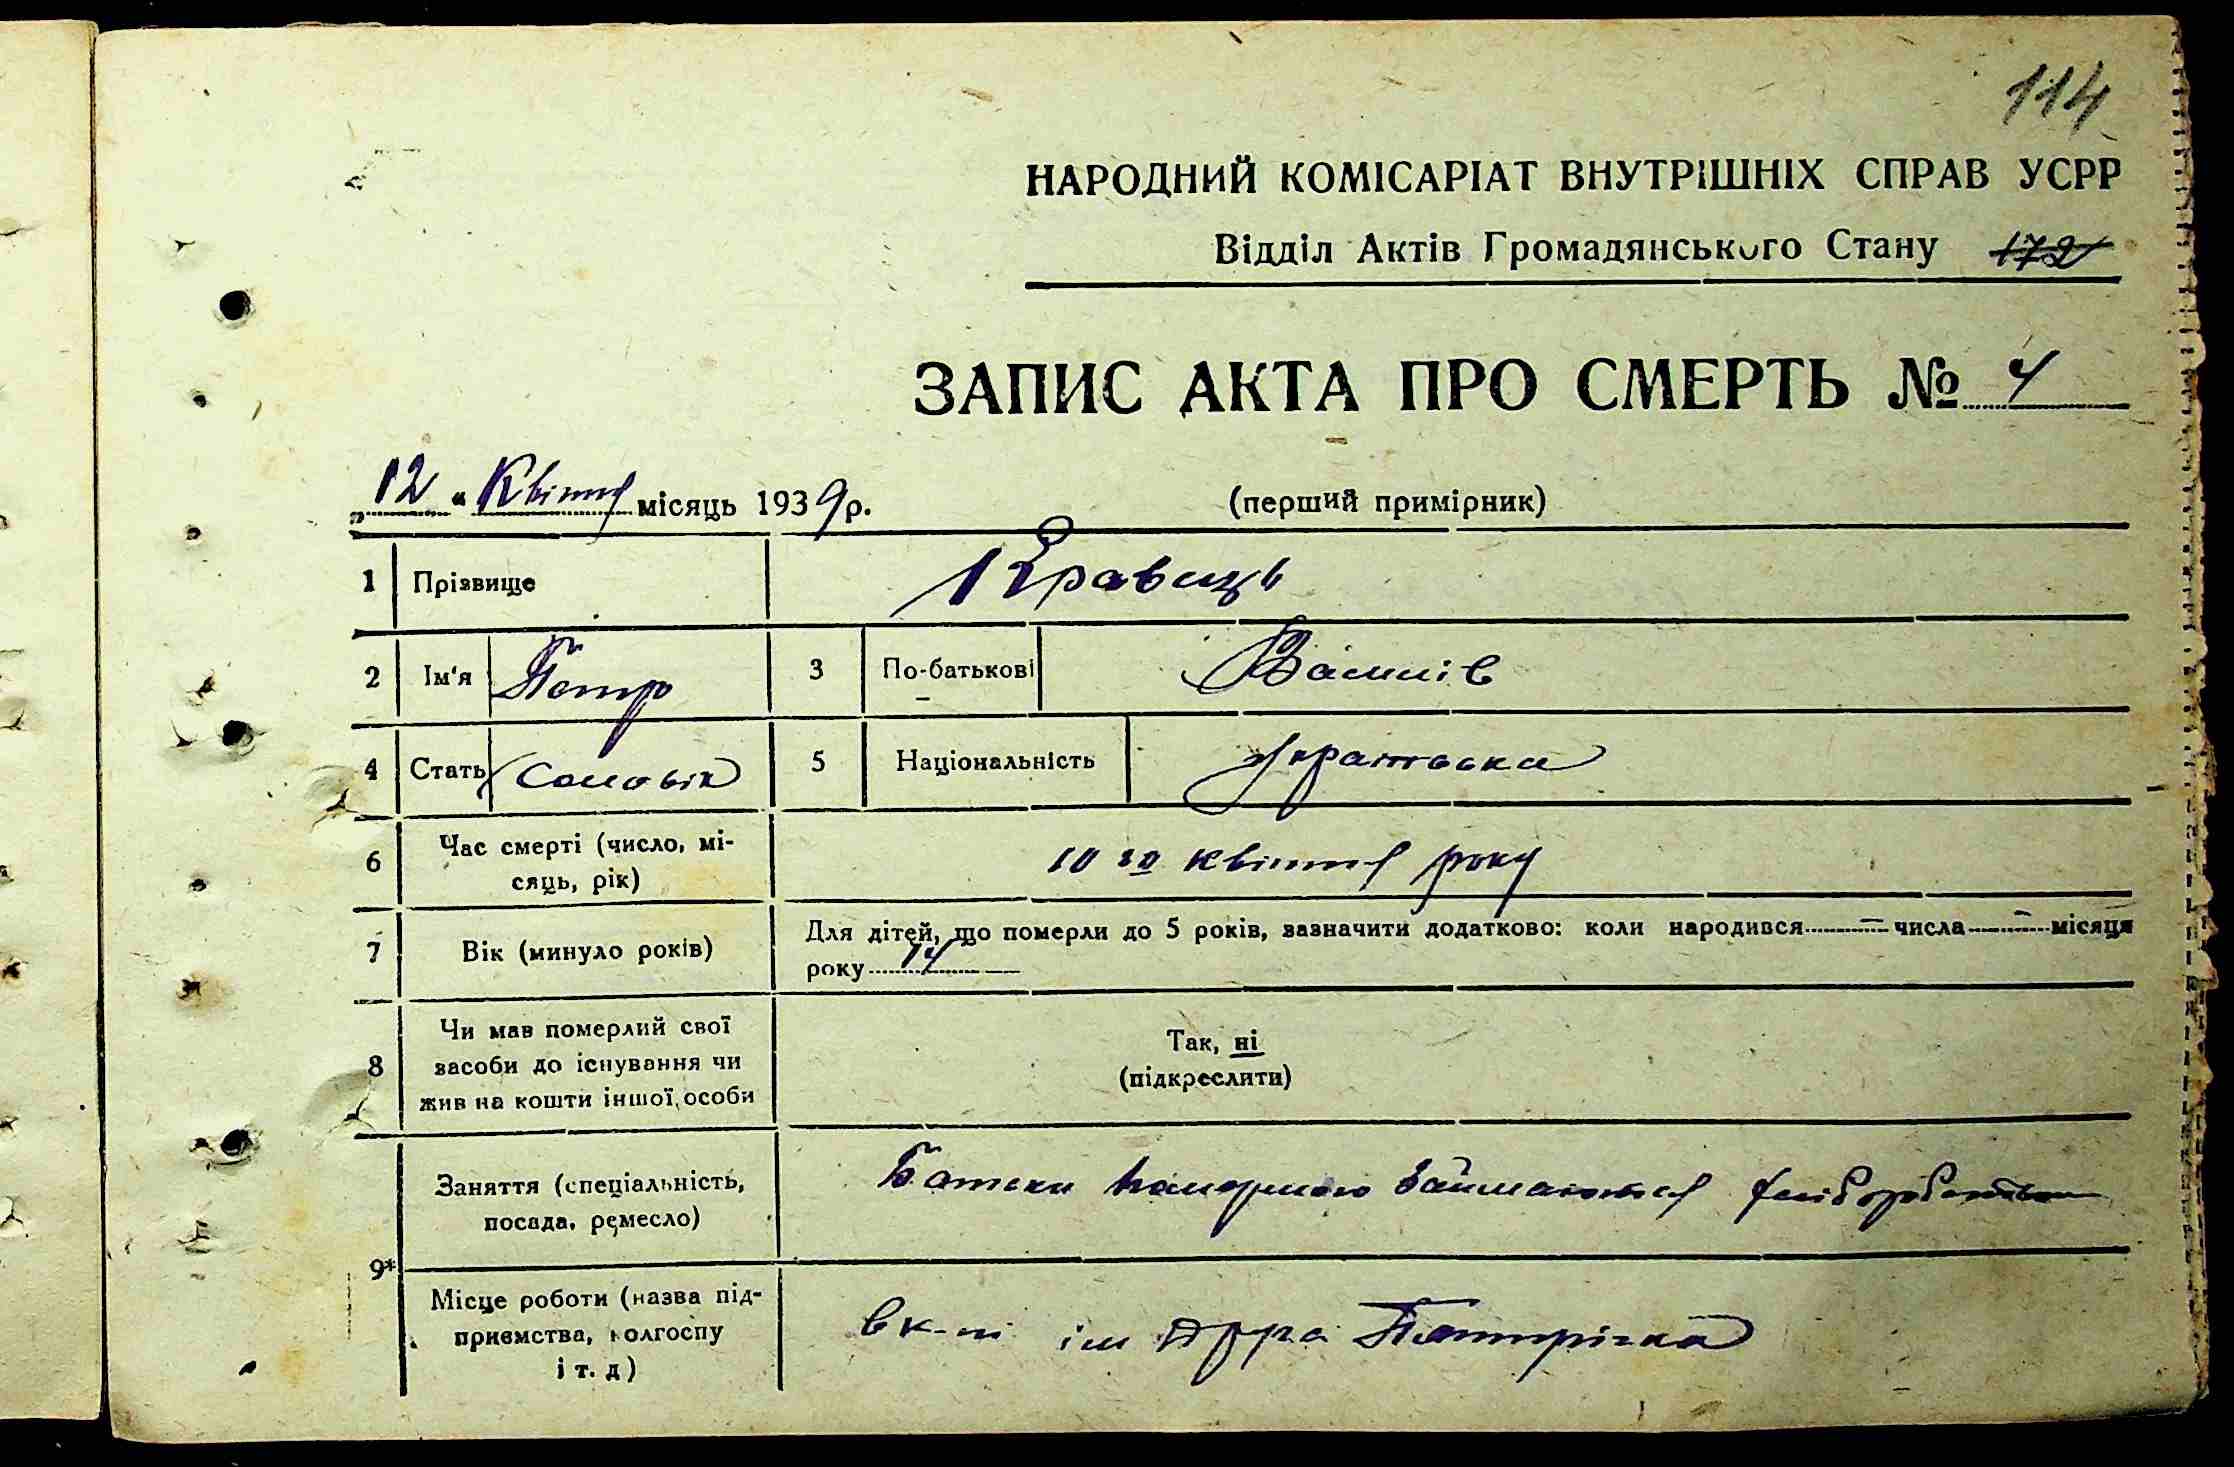 114
НАРОДНИЙ КОМІСАРІАТ ВНУТРІШНІХ СПРАВ УСРР
Відділ Актів Громадянського Стану 172
ЗАПИС АКТА ПРО СМЕРТЬ № 4
„12“ Квітня місяць 1939 р. (перший примірник)
1 Прізвище Кравець
2 Ім'я Петро 3 По-батькові
4 Стать Соловік 5 Національність українська
6 Час смерті (число, мі-
сяць, рік) 10 го квітня року
7 Вік (минуло років) Для дітей, що померли до 5 років, зазначити додатково: коли народився — числа — місяця
року 14
8 Чи мав померлий свої
засоби до існування чи
жив на кошти іншої особи
Так, ні
(підкреслити)
9*
Заняття (спеціальність,
посада, ремесло) Батьки займаються
Місце роботи (назва під-
приємства, колгоспу
і т. д) в к-пі ім